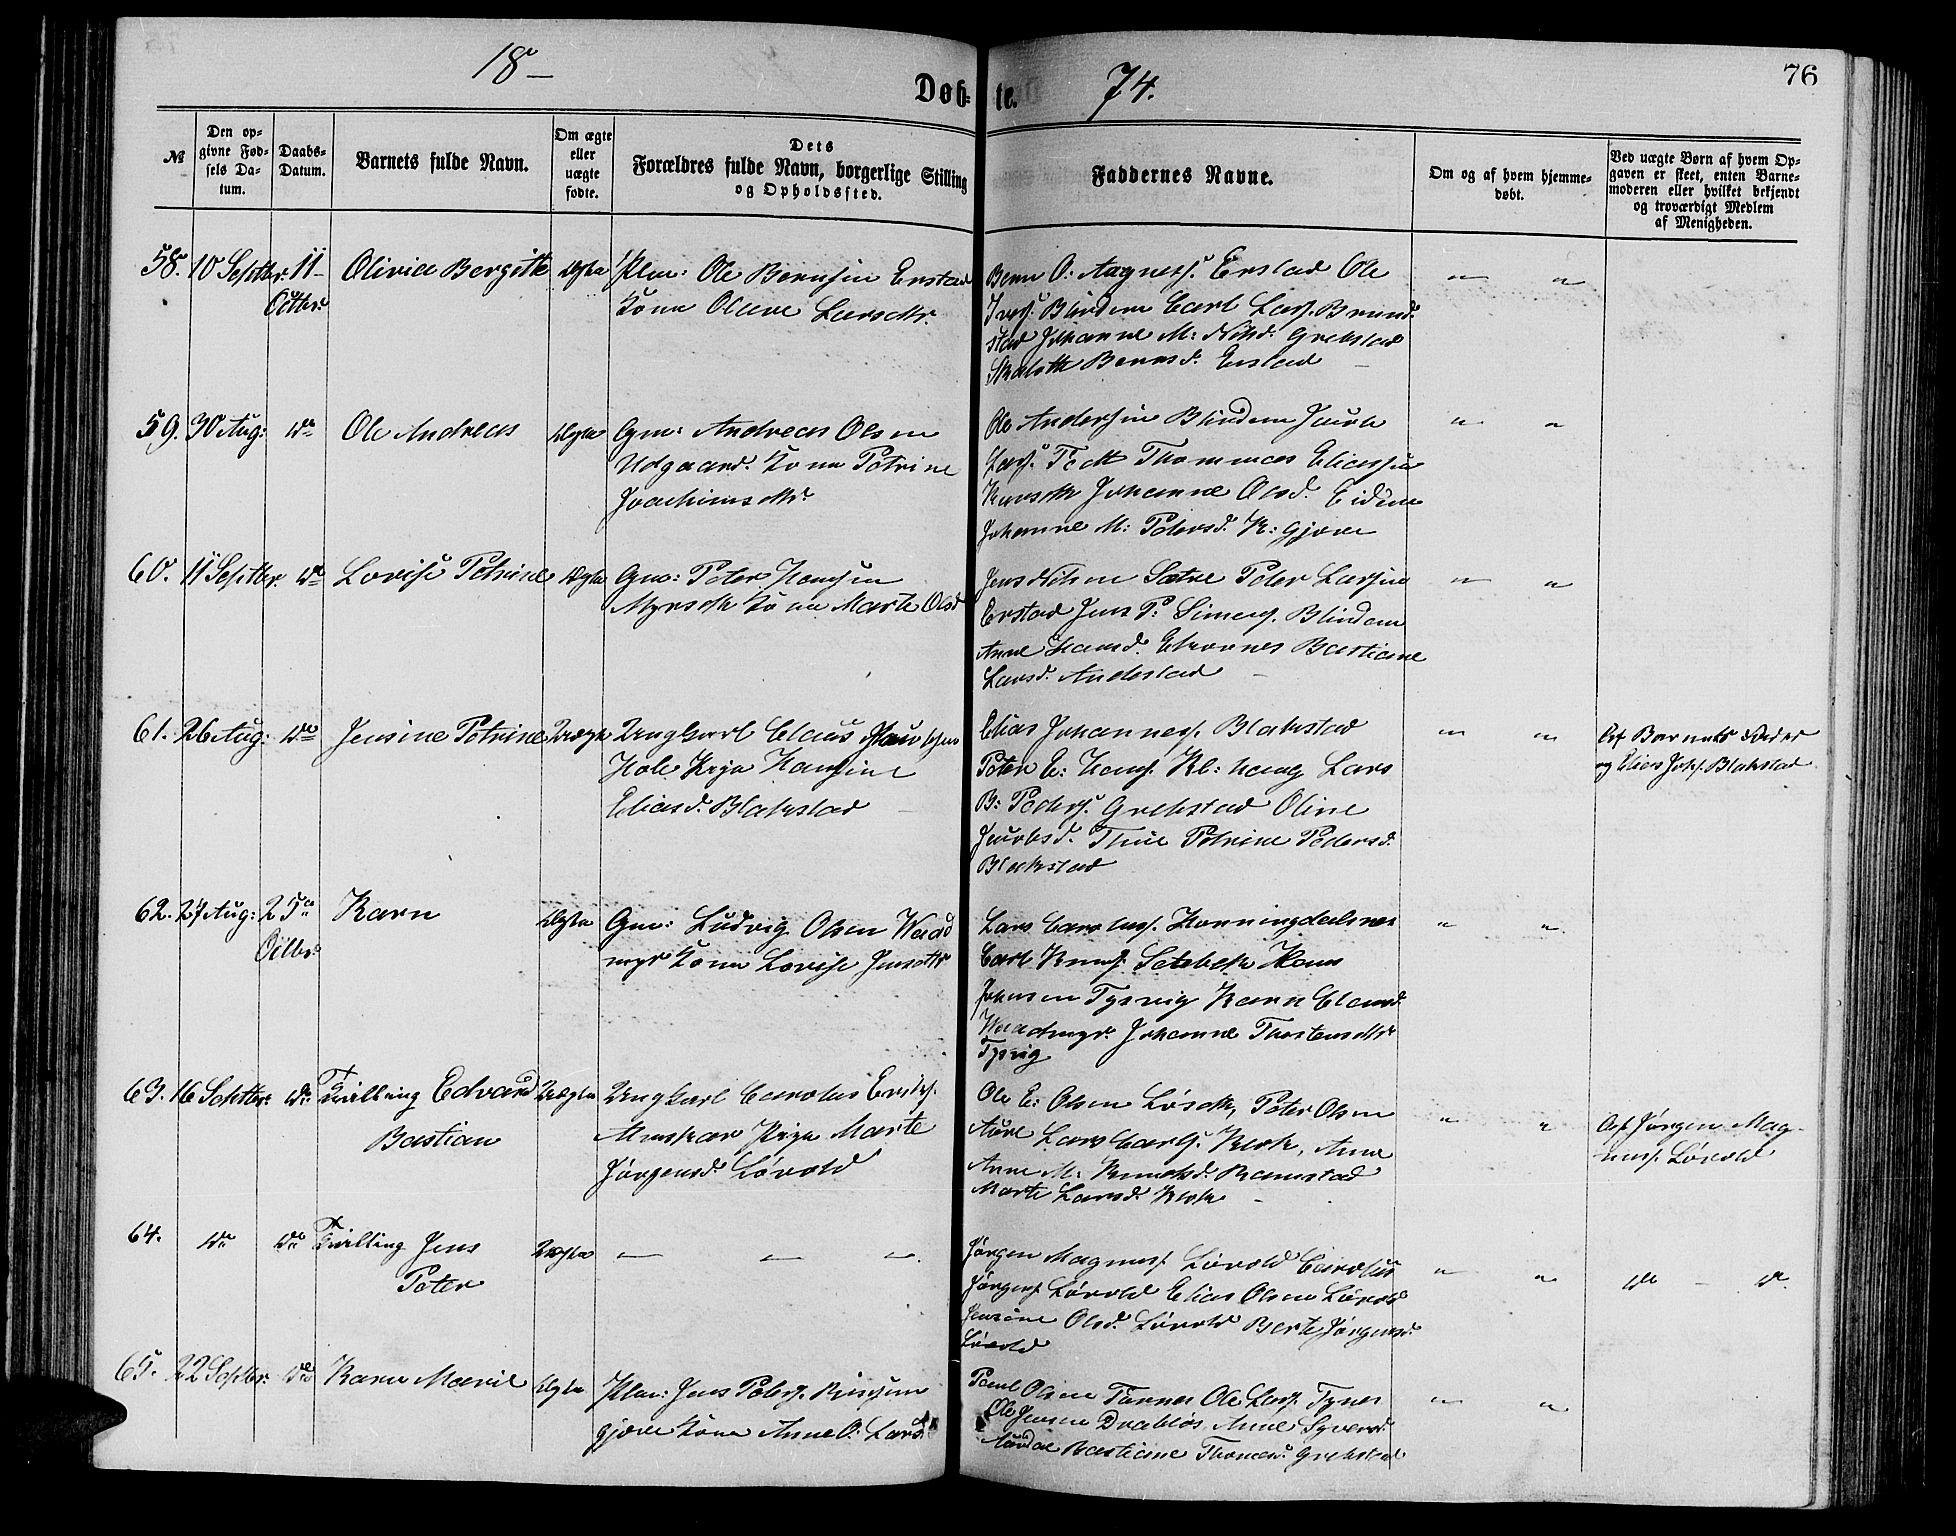 18-
Døb-
te.
74.
76
№
Den op-
givne Fød-
sels Da-
tum.
Daabs-
Datum.
Barnets fulde Navn.
Om ægte
eller
uægte
fødte.
Dets
Forældres fulde Navn, borgerlige Stilling
og Opholdssted.
Faddernes Navne.
Om og af hvem hjemme-
døbt.
Ved uægte Børn af hvem Op-
gaven er skeet, enten Barne-
moderen eller hvilket bekjendt
og troværdigt Medlem
af Menigheden.
58. 10 Septbr. 11- Olivia Bergitte Ægte Plm: Ole Bernsen Erstad
Octbr. Kone Olave Larsdtr.
Bern O: Aagnesf. Erstad Ole
Blindem Carl Larsf. Brund-
stad Johanne M: Nilsd. Grebstad
Bernsd. Erstad
59. 30 Aug: do Ole Andreas Ægte Gm: Andreas Olsen
Udgaard. Kone Petrine
Joachimsdtr.
Ole Andersen Blindem Jacob
Larsf. Thommas Eliassen
Johanne Olsd. Eidem
Johanne M: Petersd. K: gjære
60. 11 Septbr. do Lovise Petrine Ægte Gm: Peter Hansen
Kone Marte Olsd
Jens Nilsen Sætre Peter Larsen
Erstad Jens P: Simensf. Blindem
Anne Hansd. Ekornes Bastiane
Larsd. Andestad
61. 26 Aug: do Jensine Petrine Uægte Ungkarl Claus
Hole Pige Hansine
Eliasd. Blakstad
Elias Johannesf. Blakstad
Peter E: Hansf. Kl: haug Lars
B: Pedersf. Grebstad Oline
Jacobsd. Thue Petrine Pedersd.
Blakstad
Af Barnets Fader
og Elias Johsf. Blakstad
62. 27 Aug: 25de Karn Ægte Gm: Ludvig Olsen Waad
Octbr. myr Kone Lovise Jensdtr
Lars Carolusf. Honningdalsnes
Carl Knudsf. Setebek Hans
Johnsen Tysvig Karn Clausd.
Waadmyr. Johanne Thorstensdtr
Tysvig
63. 16 Septbr. do Tvilling Edvard Uægte Ungkarl Carolus
Bastian
Pige Marte
Jørgensd. Løvold
Ole E: Olsen Peter Olsen
Aure Lars Carlsf. Anne
Anne M: Knudsd. Ramstad
Marte Larsd.
Af Jørgen Mag-
nusf. Løvold
64. do do Tvilling Jens Uægte — — —
Peter
Jørgen Magnusf. Løvold Carolus
Jørgensf. Løvold Elias Olsen Løvold
Jensine Olsd. Løvold Berte Jørgensd.
Løvold
do - do
65. 22 Septbr. do Karn Marie Ægte Plm: Jens Petersf.
gjære Kone Anne O: Larsd.
Paul Olsen Ole Larsf. Tynes
Ole Jensen Drabløs Anne Syversd.
Aurdal Bastiane Thomasd. Grebstad